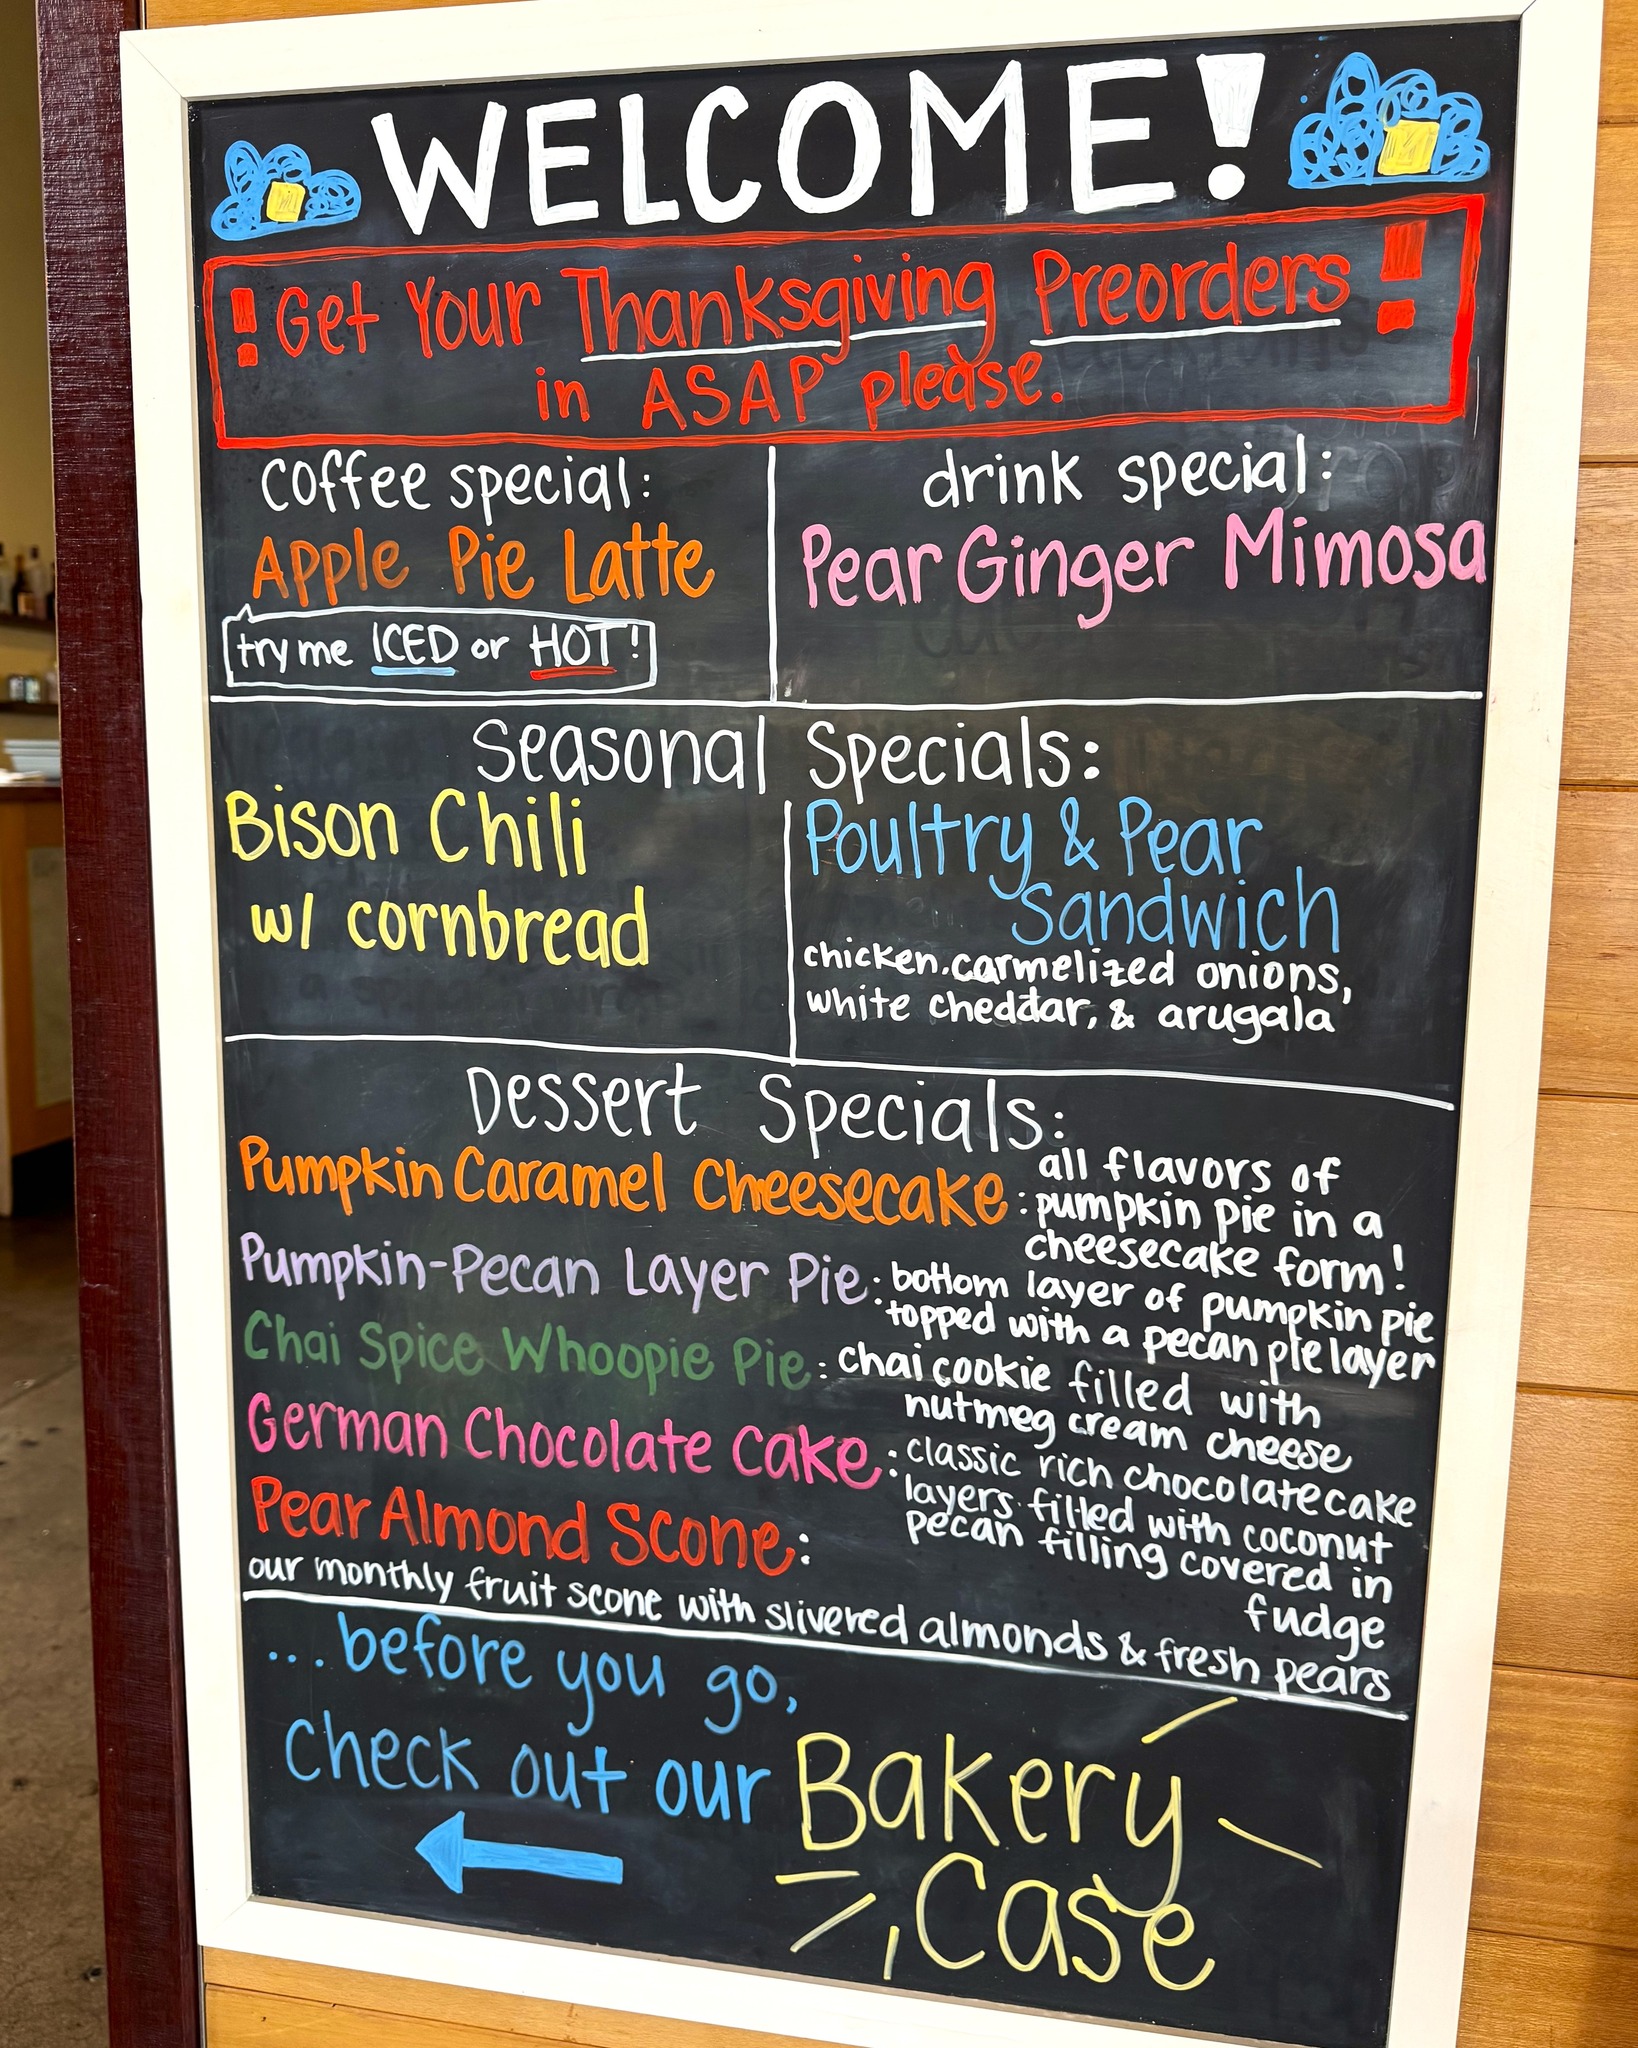 WELCOME!
! Get Your Thanksgiving Preorders !
in ASAP please.
coffee special:
Apple Pie Latte
try me ICED or HOT!
drink special:
Pear Ginger Mimosa
Seasonal Specials:
Bison Chili
w/ cornbread
Poultry & Pear
Sandwich
chicken, carmelized onions,
white cheddar, & arugala
Dessert Specials:
Pumpkin Caramel Cheesecake:
all flavors of
pumpkin pie in a
cheesecake form!
Pumpkin-Pecan Layer Pie:
bottom layer of pumpkin pie
topped with a pecan pie layer
Chai Spice Whoopie Pie:
chai cookie filled with
nutmeg cream cheese
German Chocolate Cake:
classic rich chocolate cake
layers filled with coconut
pecan filling covered in
fudge
Pear Almond Scone:
our monthly fruit scone with slivered almonds & fresh pears
...before you go,
check out our Bakery
Case